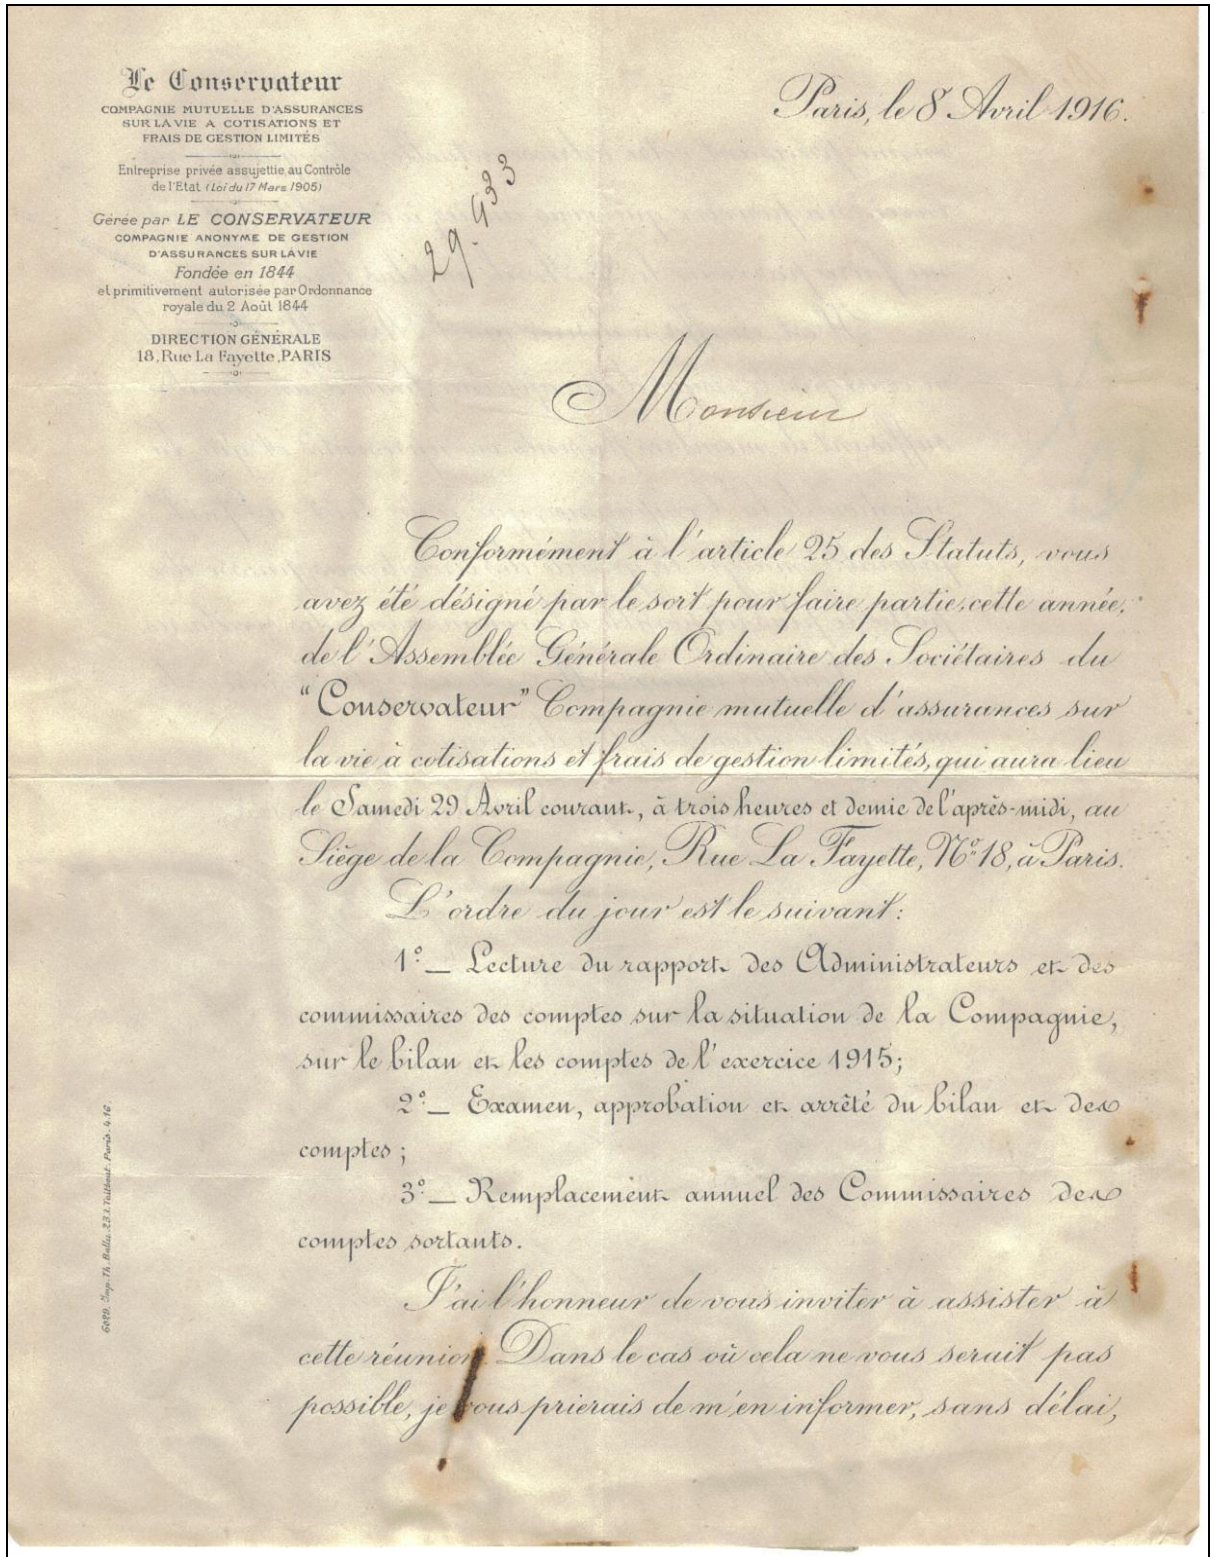 Le Conservateur
COMPAGNIE MUTUELLE D'ASSURANCES
SUR LA VIE A COTISATIONS ET
FRAIS DE GESTION LIMITÉS
Entreprise privée assujettie au Contrôle
de l'Etat (Loi du 17 Mars 1905)
Gérée par LE CONSERVATEUR
COMPAGNIE ANONYME DE GESTION
D'ASSURANCES SUR LA VIE
Fondée en 1844
et primitivement autorisée par Ordonnance
royale du 2 Août 1844
DIRECTION GÉNÉRALE
18, Rue La Fayette, PARIS
Paris, le 8 Avril 1916.
29.933
Monsieur
Conformément à l'article 25 des Statuts, vous
avez été désigné par le sort pour faire partie, cette année,
de l'Assemblée Générale Ordinaire des Sociétaires du
"Conservateur" Compagnie mutuelle d'assurances sur
la vie à cotisations et frais de gestion limités, qui aura lieu
le Samedi 29 Avril courant, à trois heures et demie de l'après-midi, au
Siège de la Compagnie, Rue La Fayette, Nº 18, à Paris.
L'ordre du jour est le suivant:
1º_ Lecture du rapport des Administrateurs et des
commissaires des comptes sur la situation de la Compagnie,
sur le bilan et les comptes de l'exercice 1915;
2º_ Examen, approbation et arrêté du bilan et des
comptes;
3º_ Remplacement annuel des Commissaires des
comptes sortants.
J'ai l'honneur de vous inviter à assister à
cette réunion. Dans le cas où cela ne vous serait pas
possible, je vous prierais de m'en informer, sans délai,
6029. Imp. Th. Ballu. 23.r. Taitbout. Paris. 4.16